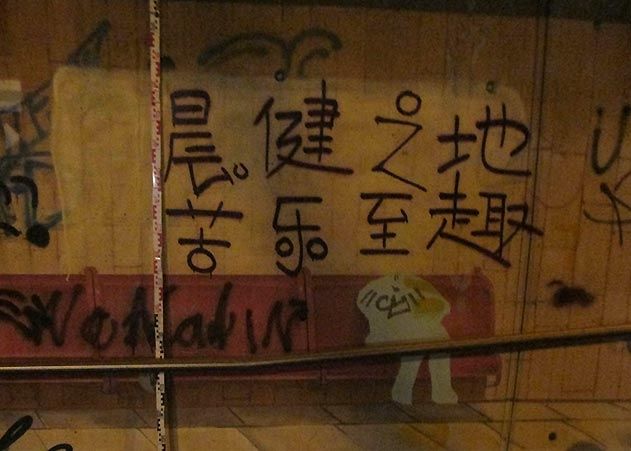 晨健之地
苦乐至趣
No Mad IN